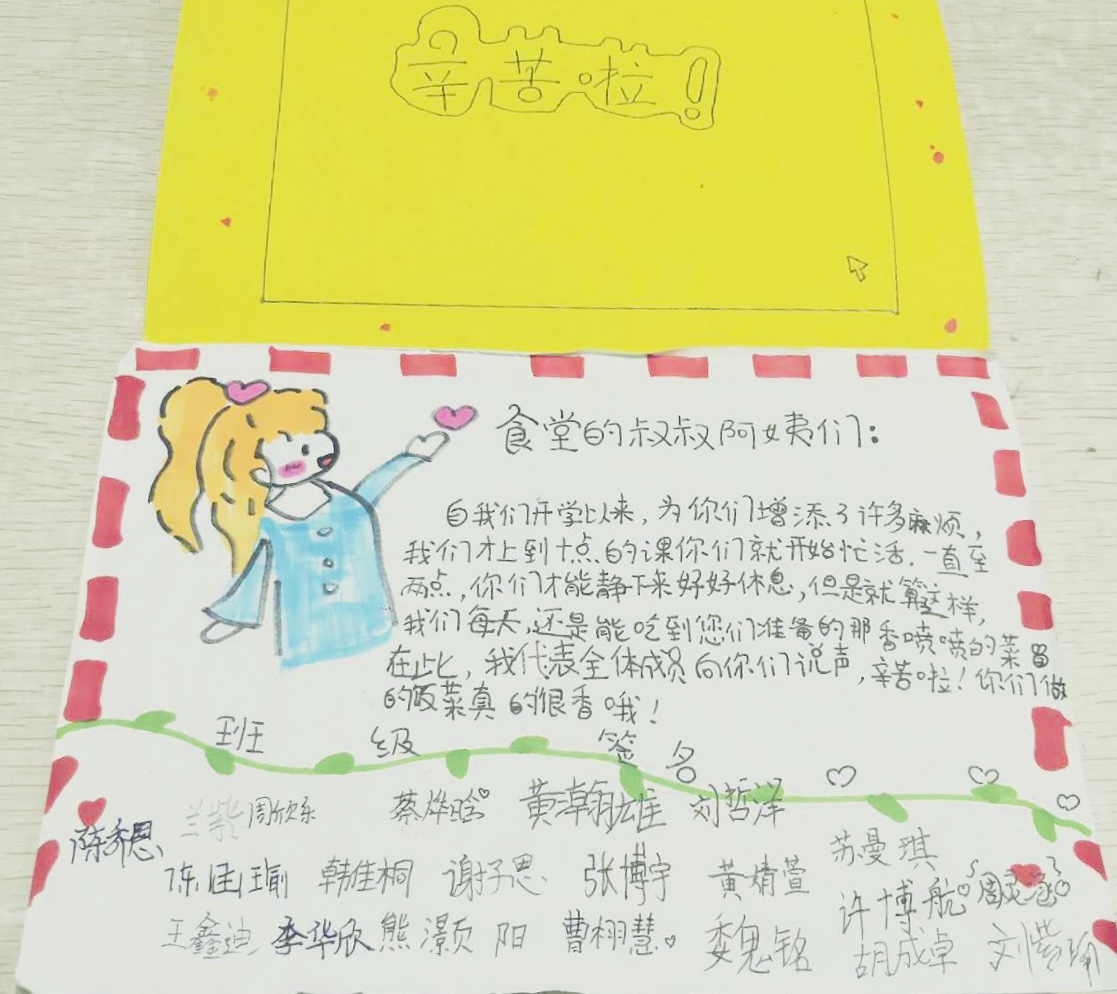 辛苦啦！
食堂的叔叔阿姨们：
自我们开学以来，为你们增添了许多麻烦，
我们才上到十点的课你们就开始忙活，一直至
两点，你们才能静下来好好休息，但是就算这样，
我们每天，还是能吃到您们准备的那香喷喷的菜
在此，我代表全体成员向你们说声，辛苦啦！你们做
的饭菜真的很香哦！
班级签名
周欣乐 蔡烨晗 黄瀚雄 刘哲泽
陈乔恩 苏曼琪
韩佳桐 谢子思 张博宇 黄婧萱
许博航
王鑫迪 李华欣 熊灏 阳 曹栩慧 魏思铭 胡成卓